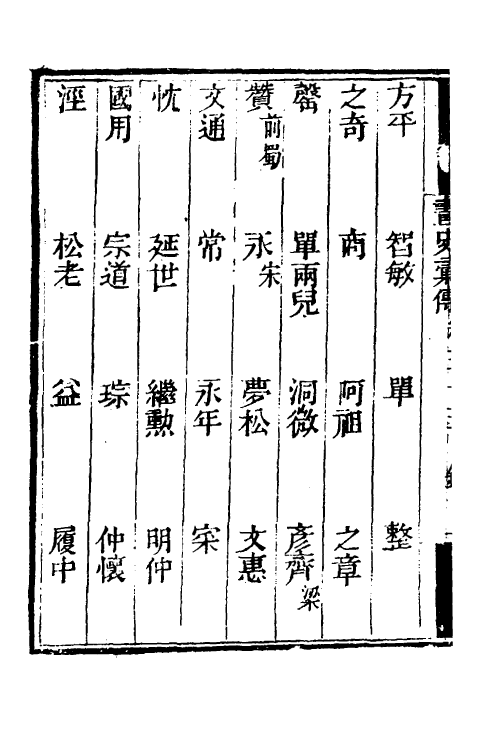 方平　智敏　單　整
之奇　商　阿祖　之章
罄　單兩兒　洞微　彥齊梁
贊前蜀　永宋　夢松　文惠
文通　常　永年　宲
忱　延世　繼勲　明仲
國用　宗道　琮　仲懷
涇　松老　益　履中
畫史彙傳